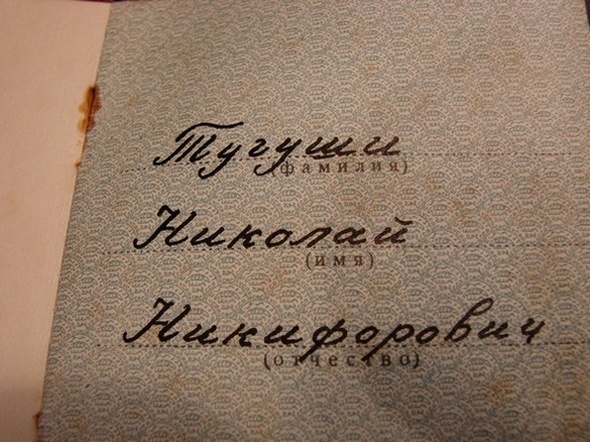 Тугуши
(фамилия)
Николай
(имя)
Никифорович
(отчество)